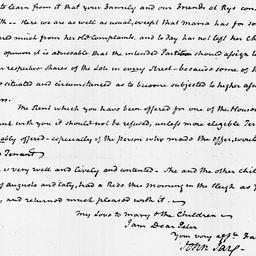 to learn from it that your Family and our Friends at Rye con
th. Here we are as well as usual, except that Mama has for so
ered much from her old Complaint, and to Day has not left her Ch
opinion it is adviseable that the intended Partition should assign to
respective Shares of the Lots in every Street – because some of th
so situated and circumstanced as to become subjected to higher ass
ers.
The Rent which you have been offered for one of the Houses
ent with you it should not be refused, unless more eligible Ter
ably offered – especially if the person who made the offer, would
Tenant
is very well and lively and contented. She and the other chil
of Augusta and Caty, had a Ride this morning in the Sleigh as f
, and returned much pleased with it.
My Love to Mary & the Children
I am Dear Peter
Your very affte. Fa
John Jay